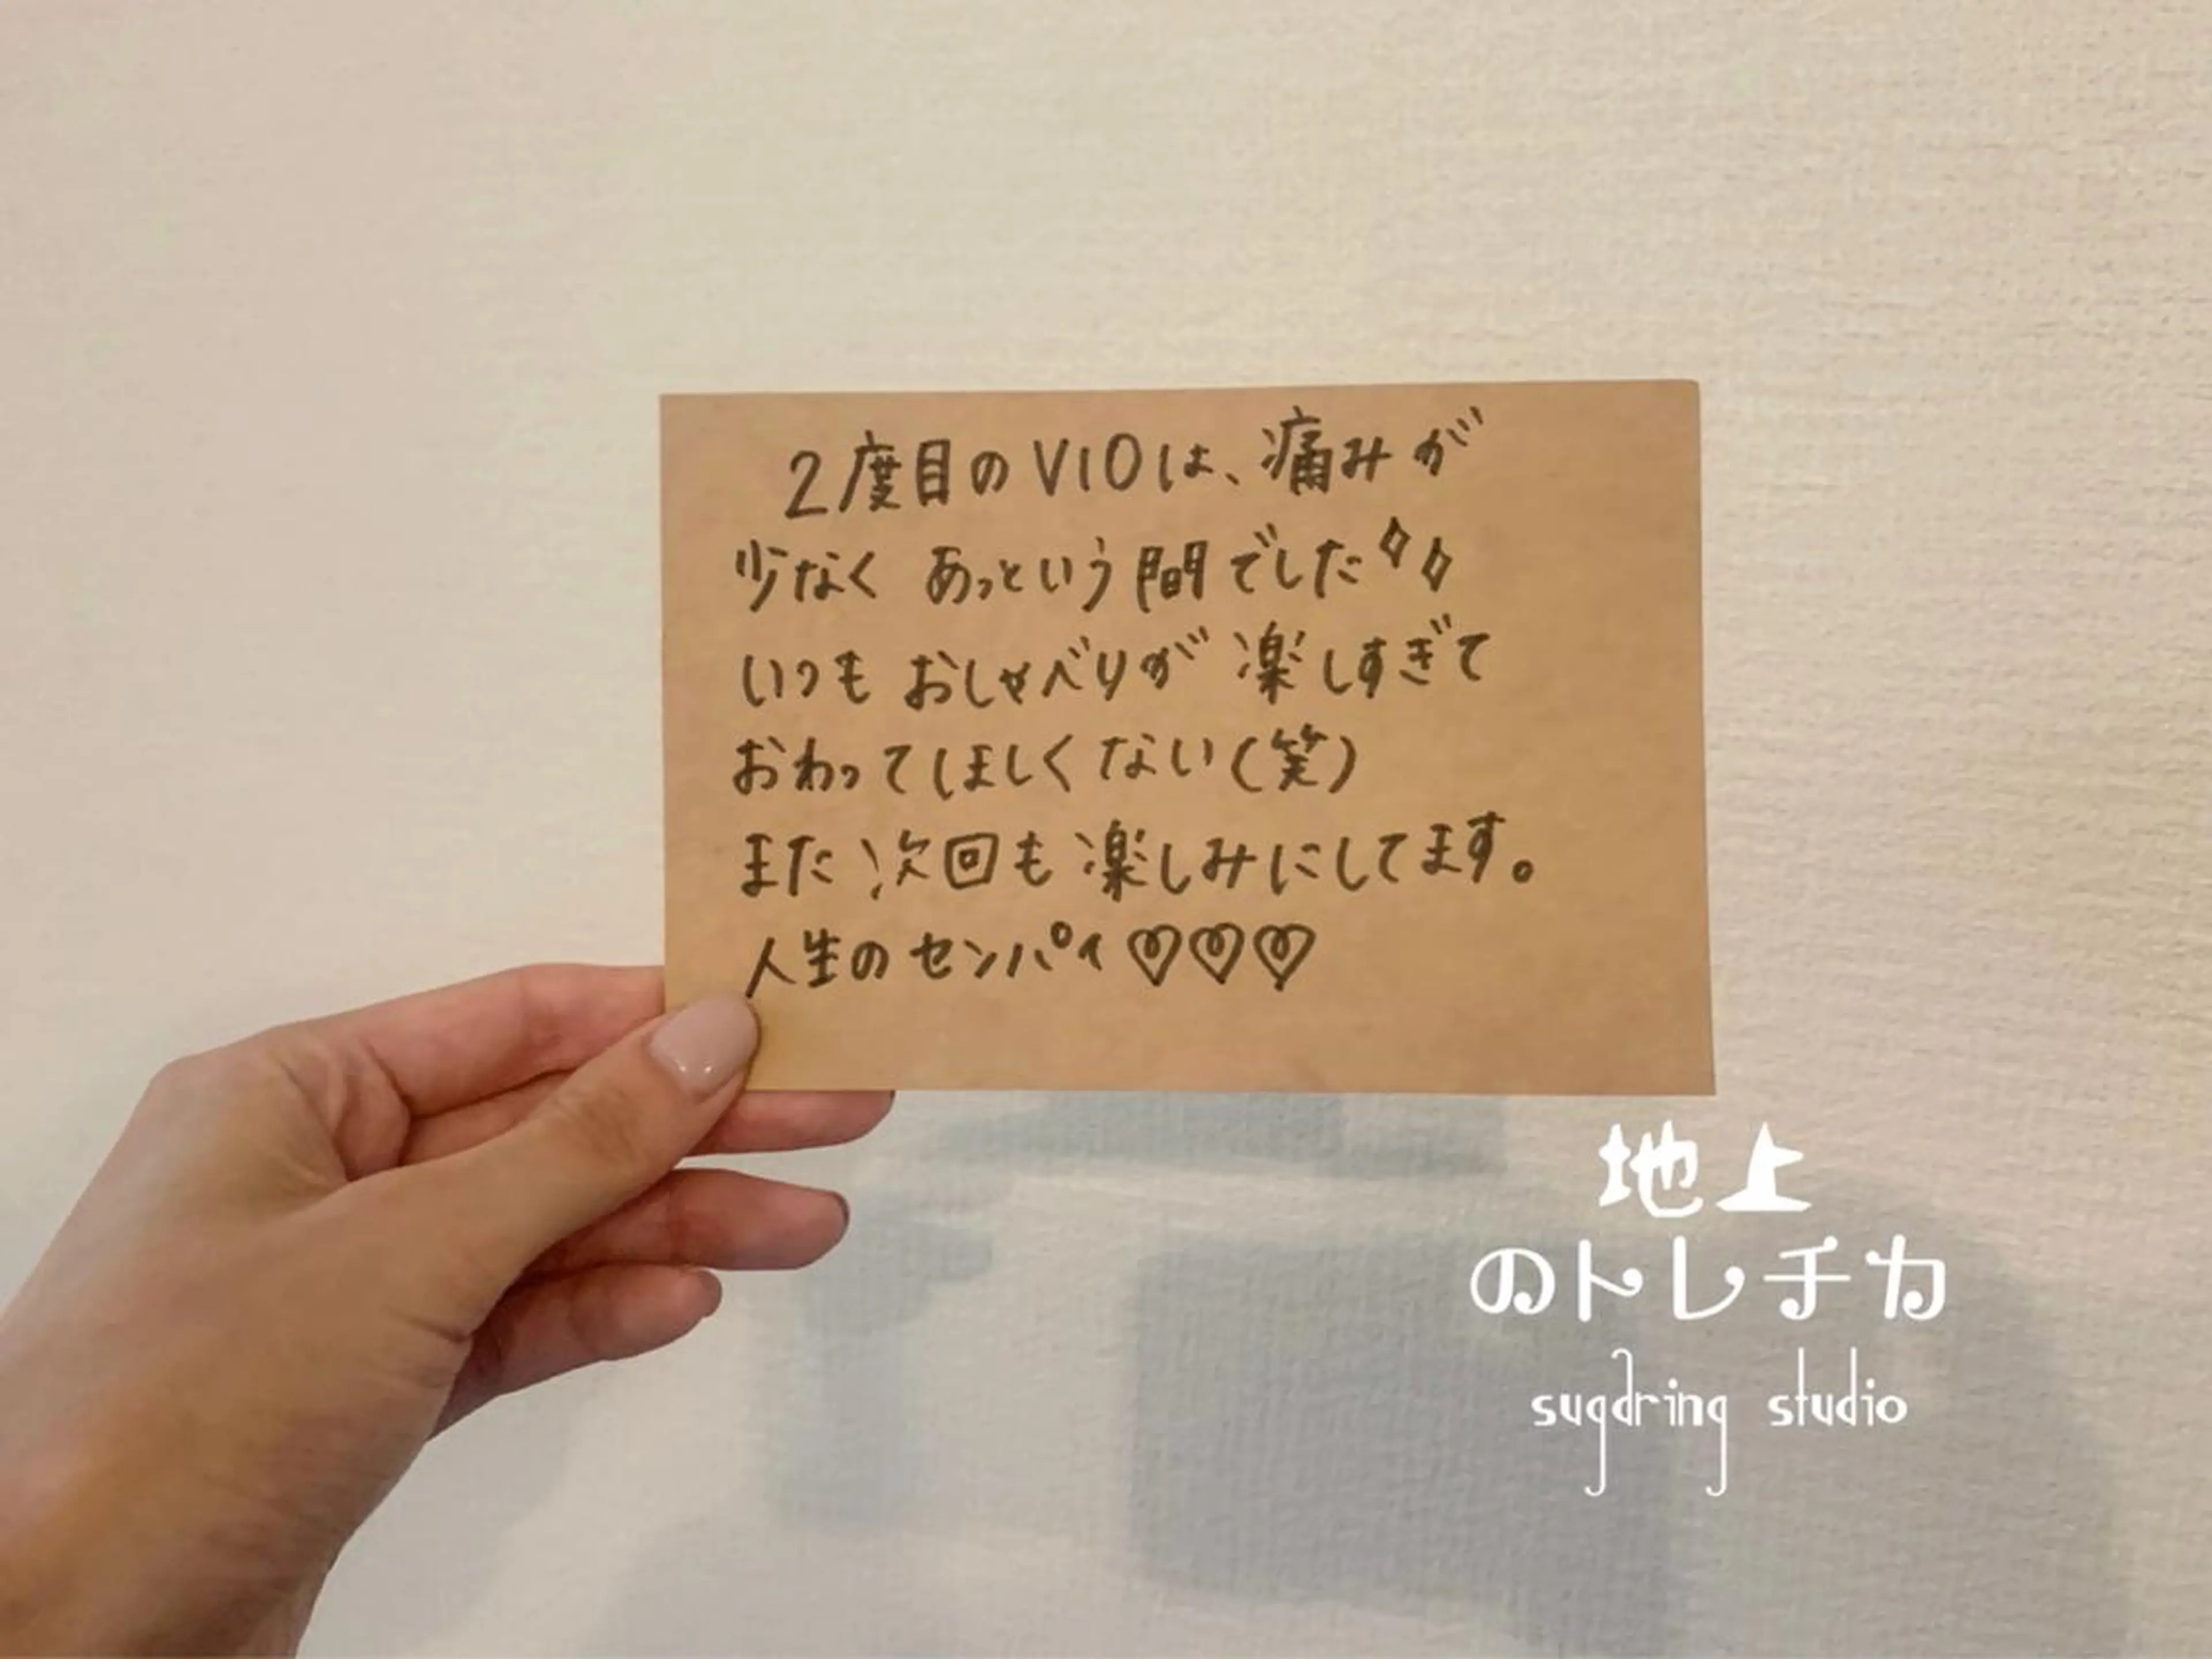 2度目のVIOは、痛みが
少なく あっという間でした
いつも おしゃべりが 楽しすぎて
おわってほしくない(笑)
また 次回も 楽しみにしてます。
人生の センパイ♡♡♡
地上
のトレチカ
sugaring studio